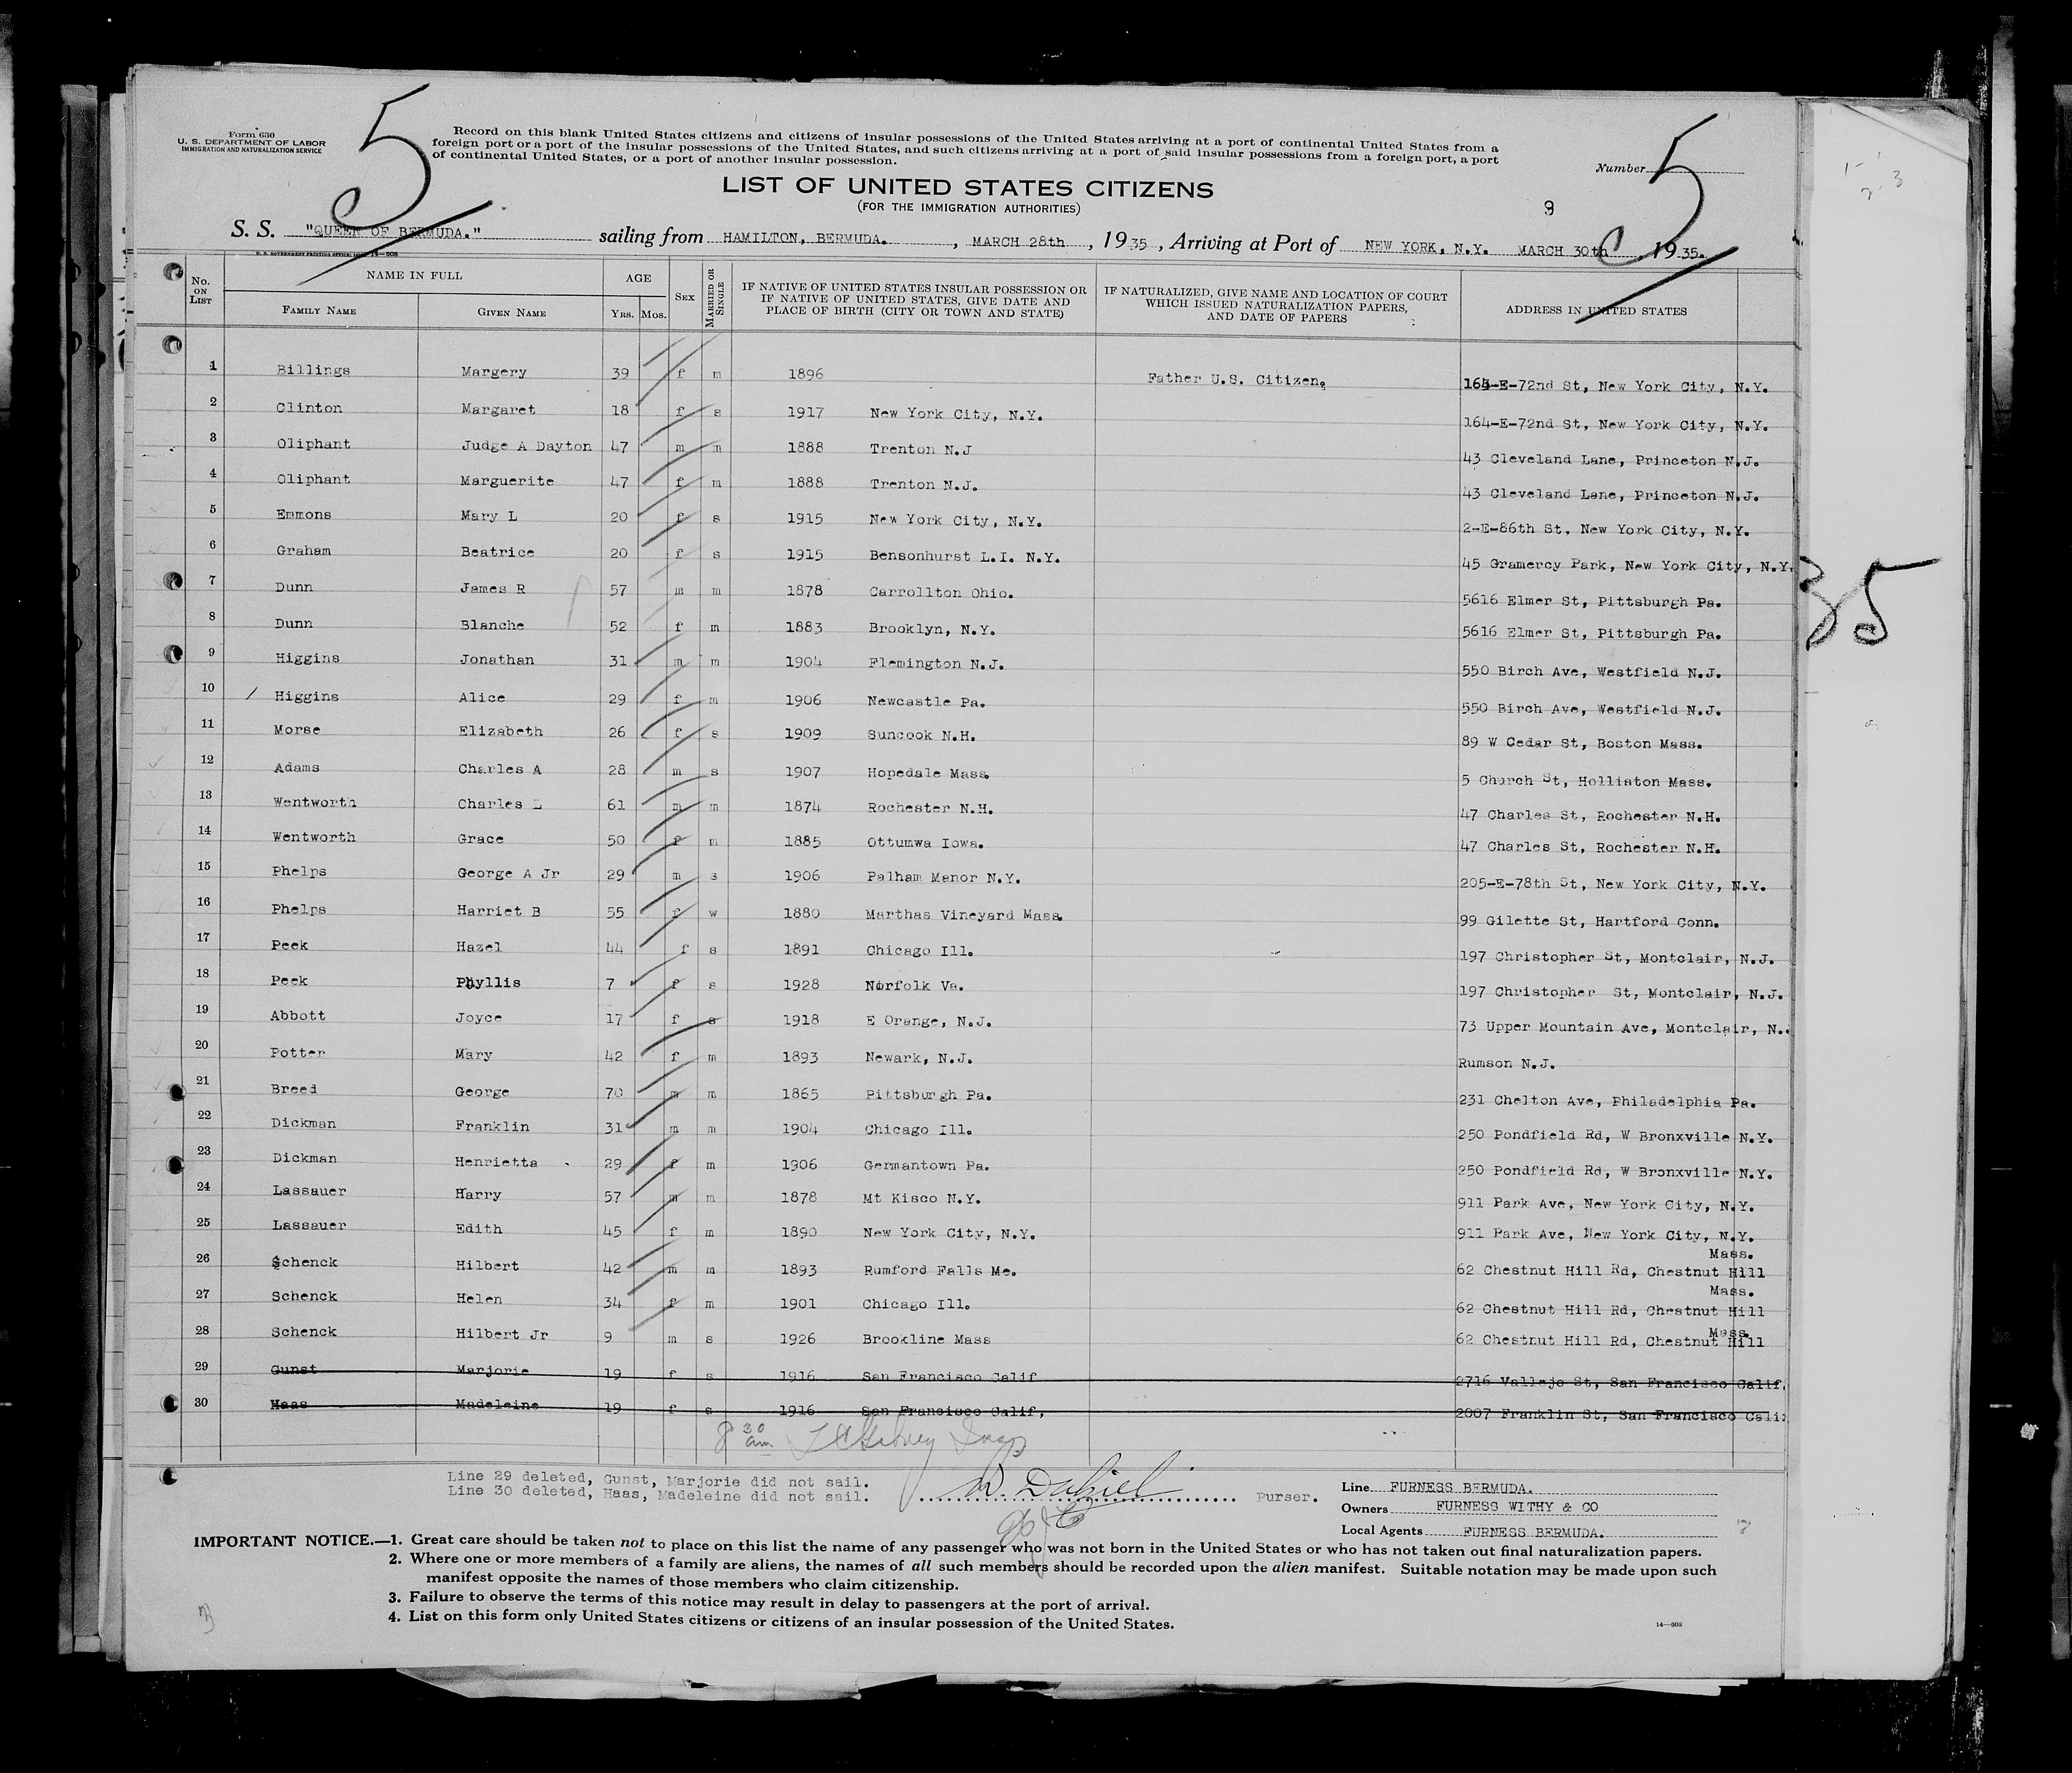 5
5
Form 630
U. S. DEPARTMENT OF LABOR
IMMIGRATION AND NATURALIZATION SERVICE
Record on this blank United States citizens and citizens of insular possessions of the United States arriving at a port of continental United States from a
foreign port or a port of the insular possessions of the United States, and such citizens arriving at a port of said insular possessions from a foreign port, a port
of continental United States, or a port of another insular possession.
Number
LIST OF UNITED STATES CITIZENS
(FOR THE IMMIGRATION AUTHORITIES)
9
S. S. "QUEEN OF BERMUDA." sailing from HAMILTON, BERMUDA. , MARCH 28th , 1935 , Arriving at Port of NEW YORK, N.Y. MARCH 30th , 1935.
U. S. GOVERNMENT PRINTING OFFICE: 14—608
No. ON LIST NAME IN FULL AGE SEX MARRIED OR SINGLE IF NATIVE OF UNITED STATES INSULAR POSSESSION OR IF NATIVE OF UNITED STATES, GIVE DATE AND PLACE OF BIRTH (CITY OR TOWN AND STATE) IF NATURALIZED, GIVE NAME AND LOCATION OF COURT WHICH ISSUED NATURALIZATION PAPERS, AND DATE OF PAPERS ADDRESS IN UNITED STATES
FAMILY NAME GIVEN NAME YRS. MOS.
1 Billings Margery 39 f m 1896 Father U.S. Citizen. 164-E-72nd St, New York City, N.Y.
2 Clinton Margaret 18 f s 1917 New York City, N.Y. 164-E-72nd St, New York City, N.Y.
3 Oliphant Judge A Dayton 47 m m 1888 Trenton N.J 43 Cleveland Lane, Princeton N.J.
4 Oliphant Marguerite 47 f m 1888 Trenton N.J. 43 Cleveland Lane, Princeton N.J.
5 Emmons Mary L 20 f s 1915 New York City, N.Y. 2-E-86th St, New York City, N.Y.
6 Graham Beatrice 20 f s 1915 Bensonhurst L.I. N.Y. 45 Gramercy Park, New York City, N.Y.
7 Dunn James R 57 m m 1878 Carrollton Ohio. 5616 Elmer St, Pittsburgh Pa.
8 Dunn Blanche 52 f m 1883 Brooklyn, N.Y. 5616 Elmer St, Pittsburgh Pa.
9 Higgins Jonathan 31 m m 1904 Flemington N.J. 550 Birch Ave, Westfield N.J.
10 Higgins Alice 29 f m 1906 Newcastle Pa. 550 Birch Ave, Westfield N.J.
11 Morse Elizabeth 26 f s 1909 Suncook N.H. 89 W Cedar St, Boston Mass.
12 Adams Charles A 28 m s 1907 Hopedale Mass. 5 Church St, Holliston Mass.
13 Wentworth Charles L 61 m m 1874 Rochester N.H. 47 Charles St, Rochester N.H.
14 Wentworth Grace 50 f m 1885 Ottumwa Iowa. 47 Charles St, Rochester N.H.
15 Phelps George A Jr 29 m s 1906 Palham Manor N.Y. 205-E-78th St, New York City, N.Y.
16 Phelps Harriet B 55 f w 1880 Marthas Vineyard Mass. 99 Gilette St, Hartford Conn.
17 Peek Hazel 44 f s 1891 Chicago Ill. 197 Christopher St, Montclair, N.J.
18 Peek Phyllis 7 f s 1928 Norfolk Va. 197 Christopher St, Montclair, N.J.
19 Abbott Joyce 17 f s 1918 E Orange, N.J. 73 Upper Mountain Ave, Montclair, N.
20 Potter Mary 42 f m 1893 Newark, N.J. Rumson N.J.
21 Breed George 70 m m 1865 Pittsburgh Pa. 231 Chelton Ave, Philadelphia Pa.
22 Dickman Franklin 31 m m 1904 Chicago Ill. 250 Pondfield Rd, W Bronxville N.Y.
23 Dickman Henrietta 29 f m 1906 Germantown Pa. 250 Pondfield Rd, W Bronxville N.Y.
24 Lassauer Harry 57 m m 1878 Mt Kisco N.Y. 911 Park Ave, New York City, N.Y.
25 Lassauer Edith 45 f m 1890 New York City, N.Y. 911 Park Ave, New York City, N.Y.
26 Schenck Hilbert 42 m m 1893 Rumford Falls Me. 62 Chestnut Hill Rd, Chestnut Hill Mass.
27 Schenck Helen 34 f m 1901 Chicago Ill. 62 Chestnut Hill Rd, Chestnut Hill Mass.
28 Schenck Hilbert Jr 9 m s 1926 Brookline Mass 62 Chestnut Hill Rd, Chestnut Hill Mass.
29 Gunst Marjorie 19 f s 1916 San Francisco Calif 2716 Vallejo St, San Francisco Calif.
30 Haas Madeleine 19 f s 1916 San Francisco Calif, 2007 Franklin St, San Francisco Cali
8 30 am
35
Line 29 deleted, Gunst, Marjorie did not sail.
Line 30 deleted, Haas, Madeleine did not sail.
Purser.
Line FURNESS BERMUDA.
Owners FURNESS WITHY & CO
Local Agents FURNESS BERMUDA.
IMPORTANT NOTICE.—1. Great care should be taken not to place on this list the name of any passenger who was not born in the United States or who has not taken out final naturalization papers.
2. Where one or more members of a family are aliens, the names of all such members should be recorded upon the alien manifest. Suitable notation may be made upon such
manifest opposite the names of those members who claim citizenship.
3. Failure to observe the terms of this notice may result in delay to passengers at the port of arrival.
4. List on this form only United States citizens or citizens of an insular possession of the United States.
14—608